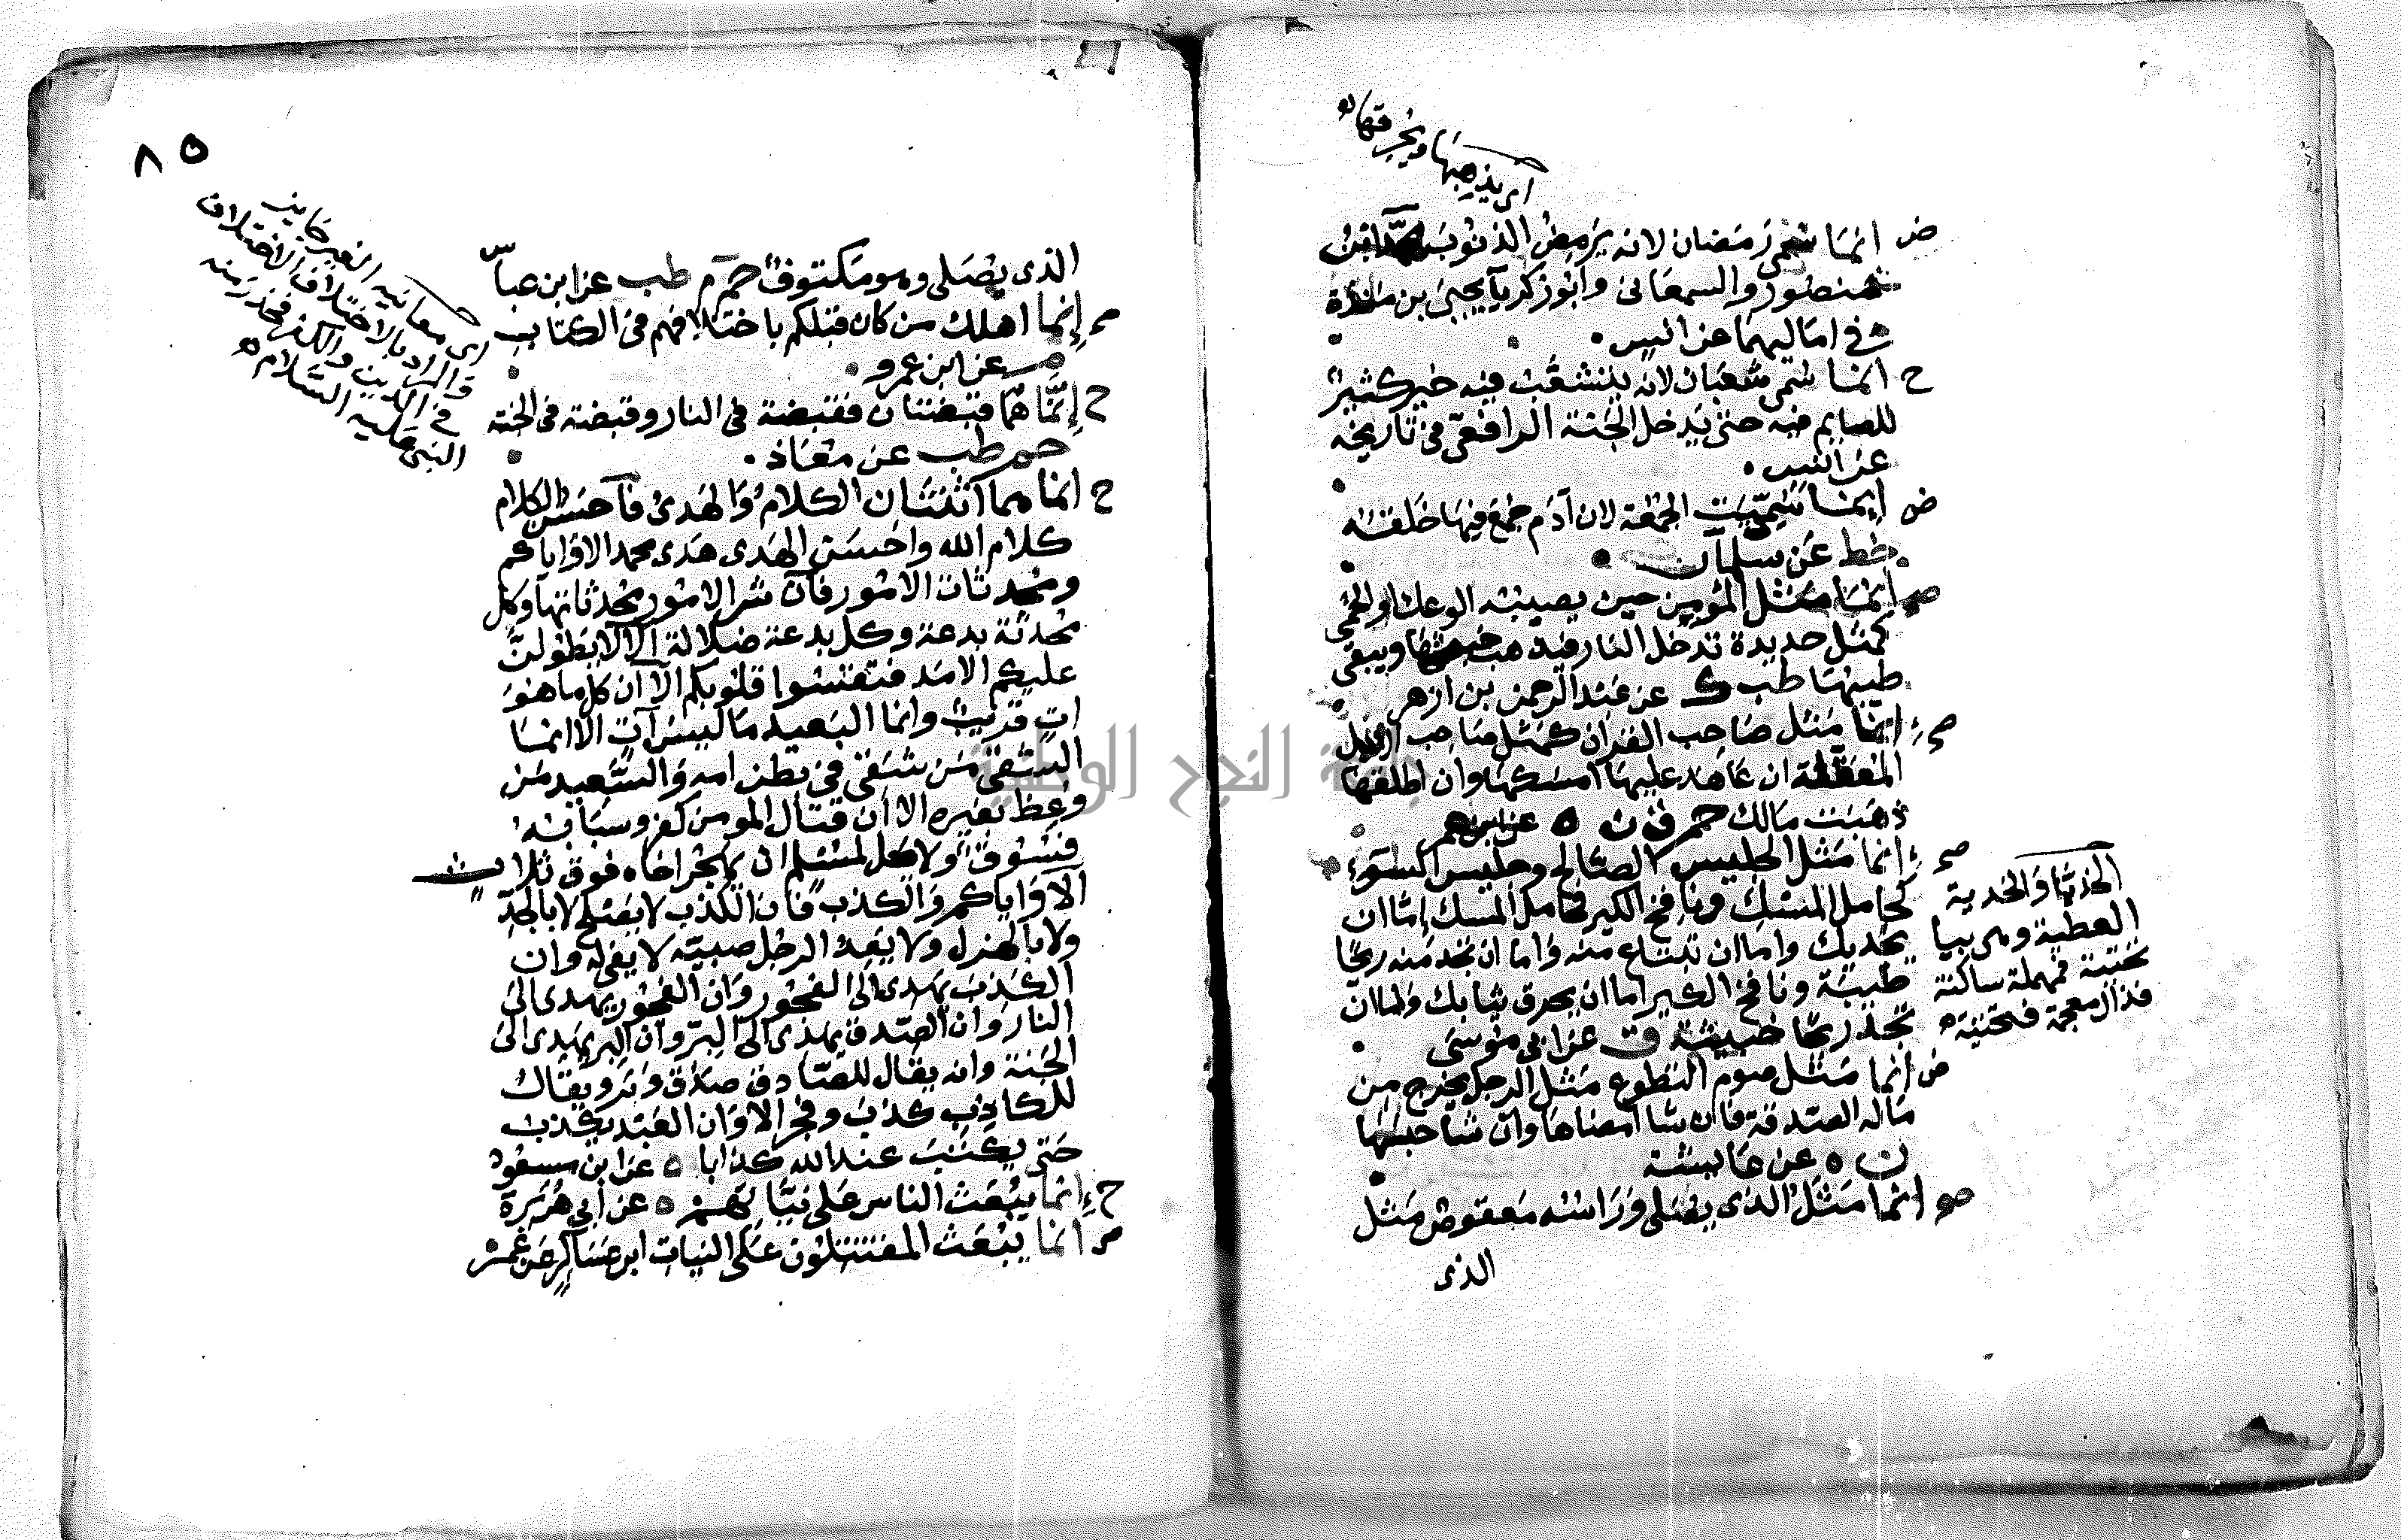 اى يذهبها ويحرقها ه
ض انما سمى رمضان لانه يرمض الذنوب محمد ابن
منصور والسمعانى وابو زكريا يحيى بن مندة
فى اماليهما عن انس
ح انما سمى شعبان لانه ينشعب فيه خير كثير
للصايم فيه حتى يدخل الجنة الرافعى فى تاريخه
عن انس
ض انما سميت الجمعة لان آدم جمع فيها خلقه
خط عن سلمان
صح انما مثل المؤمن حين يصيبه الوعك او الحمى
كمثل حديدة تدخل النار فيذهب خبثها ويبقى
طيبها طب ك عن عبد الرحمن بن ازهر
صح انما مثل صاحب القران كمثل صاحب الابل
المعقلة ان عاهد عليها امسكها وان اطلقها
ذهبت مالك حم ق ن ه عن ابن عمر
صح انما مثل الجليس الصالح وجليس السوء
كحامل المسك ونافخ الكير فحامل المسك إما ان
يحذيك واما ان تبتاع منه واما ان تجد منه ريحا
طيبة ونافخ الكير اما ان يحرق ثيابك واما ان
تجد ريحا خبيثة ق عن ابى موسى
ض انما مثل صوم التطوع مثل الرجل يخرج من
ماله الصدقة فان شا امضاها وان شا حبسها
ن ه عن عايشة
صح انما مثل الذى يصلى وراسه معقوص مثل
الذى
الحذيا والحذية
العطية وهى بيا
تحتية فمهملة ساكنة
فذال معجمة فتحتية ه
٨٥
الذى يصلى وهو مكتوف حم م طب عن ابن عباس
صح إنما اهلك من كان قبلكم باختلافهم فى الكتاب
م عن ابن عمرو
ح إنما هما قبضتان فقبضة فى النار وقبضة فى الجنة
حم طب عن معاذ
ح انما هما اثنتان الكلام والهدى فاحسن الكلام
كلام الله واحسن الهدى هدى محمد الا واياكم
ومحدثات الامور فان شر الامور محدثاتها وكل
محدثة بدعة وكل بدعة ضلالة الا لا يطولن
عليكم الامد فتقسوا قلوبكم الا ان كل ما هو
ات قريب وانما البعيد ما ليس آت الا انما
الشقى من شقى فى بطن امه والسعيد من
وعظ بغيره الا ان قتال المومن كفر وسبابه
فسوق ولا يحل لمسلم ان يهجر اخاه فوق ثلاث
الا واياكم والكذب فان الكذب لا يصلح لا بالجد
ولا بالهزل ولا يعد الرجل صبيه لا يفى له وان
الكذب يهدى الى الفجور وان الفجور يهدى الى
النار وان الصدق يهدى الى البر وان البر يهدى الى
الجنة وانه يقال للصادق صدق وبر ويقال
للكاذب كذب وفجر الا وان العبد يكذب
حتى يكتب عند الله كذابا ه عن ابن مسعود
ح إنما يبعث الناس على نياتهم ه عن ابى هريرة
انما يبعث المقتتلون على النيات ابن عساكر عن عمر
اى معانيه الغير جايز
والمراد بالاختلاف الاختلاف
فى الدين والكفر فحذر منه
النبى عليه السلام ه